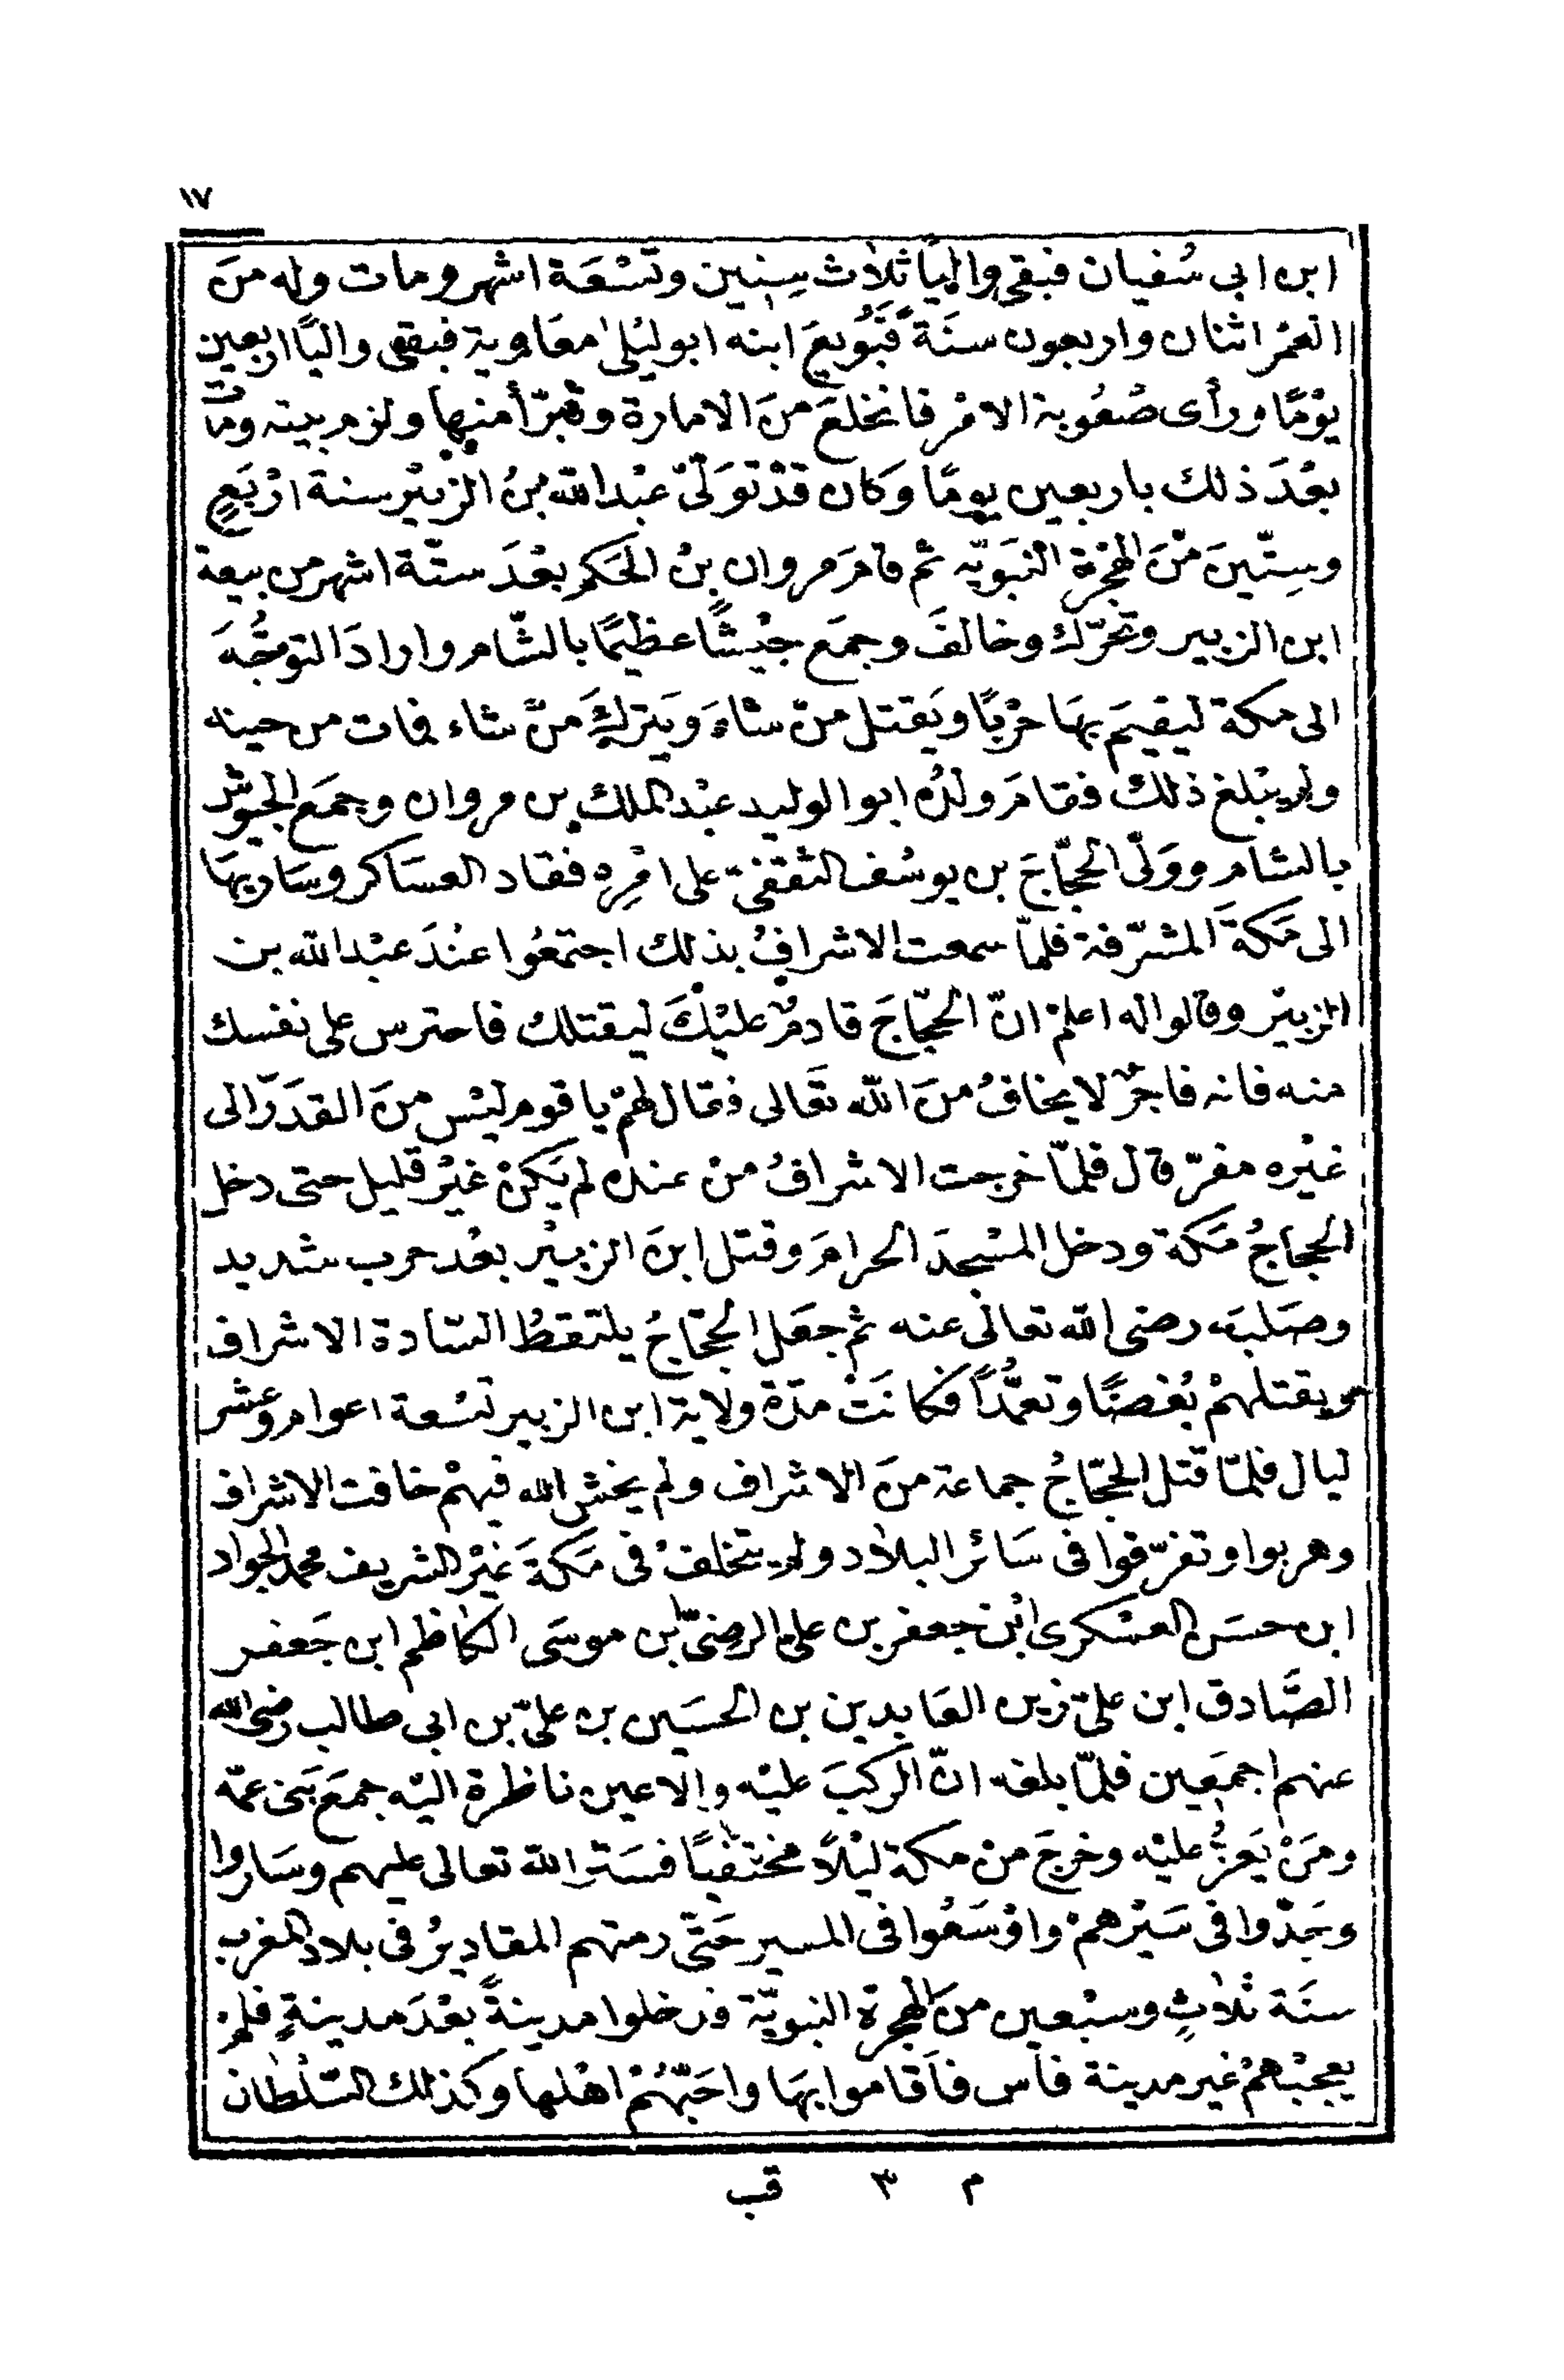 ١٧
ابن ابى سُفيان فبقى واليًا ثلاث سِنِين وتسْعَة اشهر ومات وله منَ
العُمْر اثنان واربعون سنَة فَبُويعَ ابنه ابو ليْلى معَاوية فبقى واليًا اربعين
يوْمًا ورأى صُعُوبة الامْر فانخلعَ منَ الامارة وتبرّأ منها ولزم بيته ومات
بعْدَ ذلك باربعين يومًا وَكان قدْ تَوَلّى عبْد الله بنُ الزبيْر سنة ارْبَعٍ
وسِتّينَ منَ الهِجْرة النّبَوِيّه ثم قامَ مروان بنُ الحَكم بعْدَ ستّة اشهر من بيعة
ابن الزبير وتحَرّك وخالفَ وجمَع جيْشًا عظيمًا بالشّام وارادَ التوجُّهَ
الى مكة ليقيمَ بهَا حرْبًا ويَقتل منْ شاءَ وَيَتركَ منْ شاء فمات من حينه
ولم يبْلغ ذلك فقامَ ولدُه ابو الوليد عبْد الملك بن مروان وجمَع الجيُوش
بالشام ووَلّى الحجّاجَ بن يوسُف الثقفىّ على امْرِه فقاد العسَاكر وسَار بهَا
الى مَكةَ المشرّفة فلمّا سمعت الاشرافُ بذلك اجتمَعُوا عنْدَ عبْد الله بن
الزبيْر وقالوا له اعلمْ انّ الحَجّاجَ قادمٌ عليْكَ ليقتلك فاحترس على نفسك
منه فانه فاجرٌ لا يخافُ منَ الله تعَالى فقال لهمْ يا قوم ليْس منَ القدَرَ الى
غيْره مفرّ قال فلمّا خرجت الاشرافُ منْ عنده لم يَكنْ غيْر قليل حتى دخل
الحجاجُ مَكة ودخل المسْجدَ الحرامَ وقتل ابنَ الزبيْر بعْد حرب شديد
وصَلبَه رضى الله تعالى عنه ثم جعَل الحجّاجُ يلتقطُ السّادة الاشراف
ويقتلهمْ بُغضًا وتعمُّدًا فكانَتْ مدّة ولاية ابن الزبير تسْعة اعوام وعشر
ليال فلمّا قتل الحجّاجُ جماعة منَ الاشراف ولم يخش الله فيهمْ خافت الاشراف
وهربوا وتفرّقوا فى سَائر البلاد ولم يتخلفْ فى مَكةَ غيْر الشريف محمد الجواد
ابن حسَن العسْكرى ابْن جعفر بن على الرضىّ بن موسَى الكاظم ابن جَعفر
الصَّادق ابن علىّ زين العَابدين بن الحسَين بن علىّ بن ابى طالب رضى الله
عنهم اجمَعين فلمّا بلغه انّ الركبَ عليْه والاعين ناظرة اليْه جمَعَ بَنى عمّه
ومَنْ يَعزُّ عليْه وخرجَ منْ مكة ليْلًا مختفيًا فسَترَ الله تعالى عليهم وسَاروا
وجَدّوا فى سَيْرهمْ واوْسَعُوا فى المسير حَتّى رمتهم المقاديرُ فى بلاد المغرب
سنَة ثلاثٍ وسبْعين منَ الهجرة النبويّة فدخلوا مدينةً بعْدَ مدينةٍ فلمْ
يعجبْهمْ غير مدينة فاس فأقاموا بهَا واحَبّهُمْ اهْلها وكذلك السّلطان
م ٣ قب